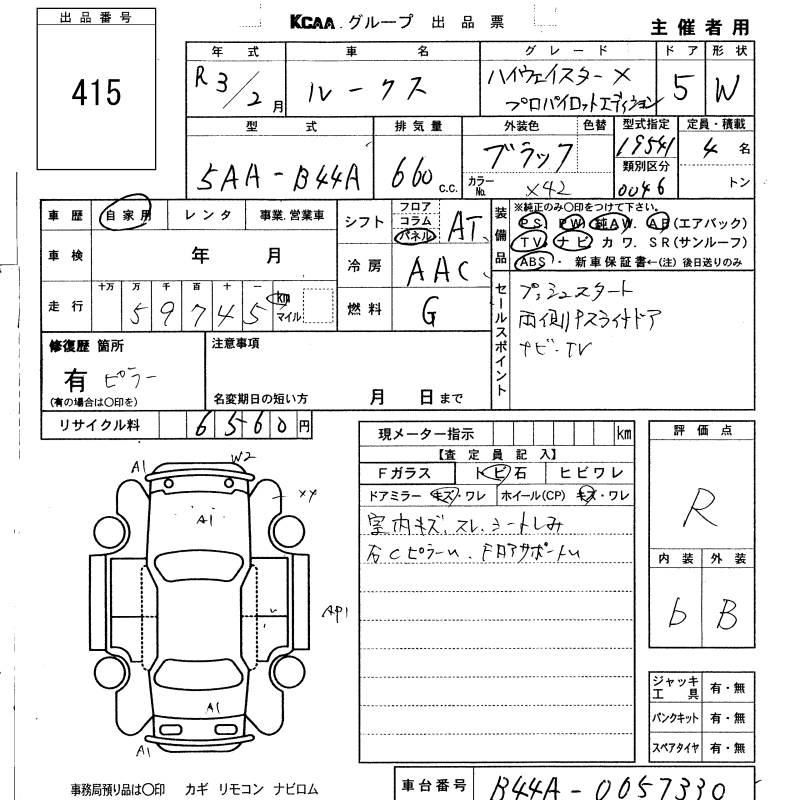 KCAA グループ 出品票
主催者用
出品番号
415
年式 車名 グレード ドア 形状
R3/2月 ルークス ハイウェイスターX プロパイロットエディション 5 W
型式 排気量 外装色 色替 型式指定 定員・積載
5AA-B44A 660 c.c. ブラック 19541 4名
カラーNo. X42 類別区分 0046 トン
車歴 自家用 レンタ 事業.営業車
シフト フロア コラム パネル AT
装備品 ※純正のみ〇印をつけて下さい。
PS. PW. 純AW. AB(エアバック)
TV. ナビ カワ. SR(サンルーフ)
ABS・ 新車保証書←(注)後日送りのみ
車検 年 月
冷房 AAC
走行 十万 万 千 百 十 一
59745 km マイル
燃料 G
セールスポイント
プッシュスタート
両側パスライドドア
ナビ・TV
修復歴 箇所
有 ピラー
(有の場合は〇印を)
注意事項
名変期日の短い方 月 日まで
リサイクル料 6560円
現メーター指示 km
【査定員記入】
Fガラス トビ石 ヒビワレ
ドアミラー キズ・ワレ ホイール(CP) キズ・ワレ
室内キズ、スレ、シートしみ
右CピラーU、FロアサポートU
評価点
R
内装 外装
b B
A1 W2
XX
A1
AP1
A1
A1
ジャッキ工具 有・無
パンクキット 有・無
スペアタイヤ 有・無
事務局預り品は〇印 カギ リモコン ナビロム
車台番号 B44A-0057330